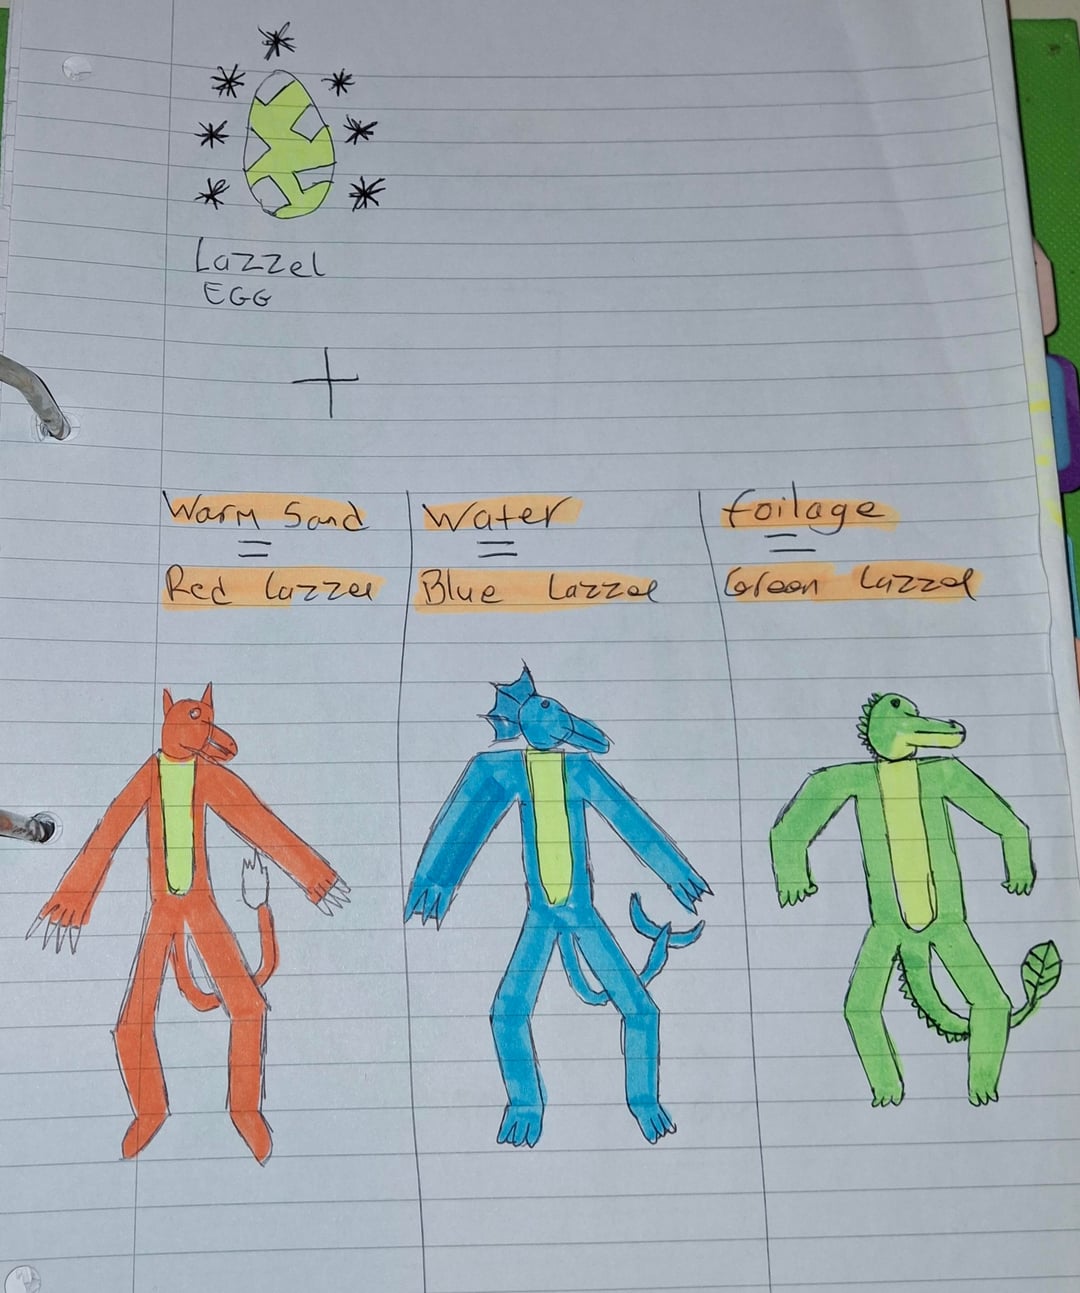 Lazzel
EGG
+
Warm Sand
=
Red Lazzel
Water
=
Blue Lazzel
foilage
=
Green Lazzel